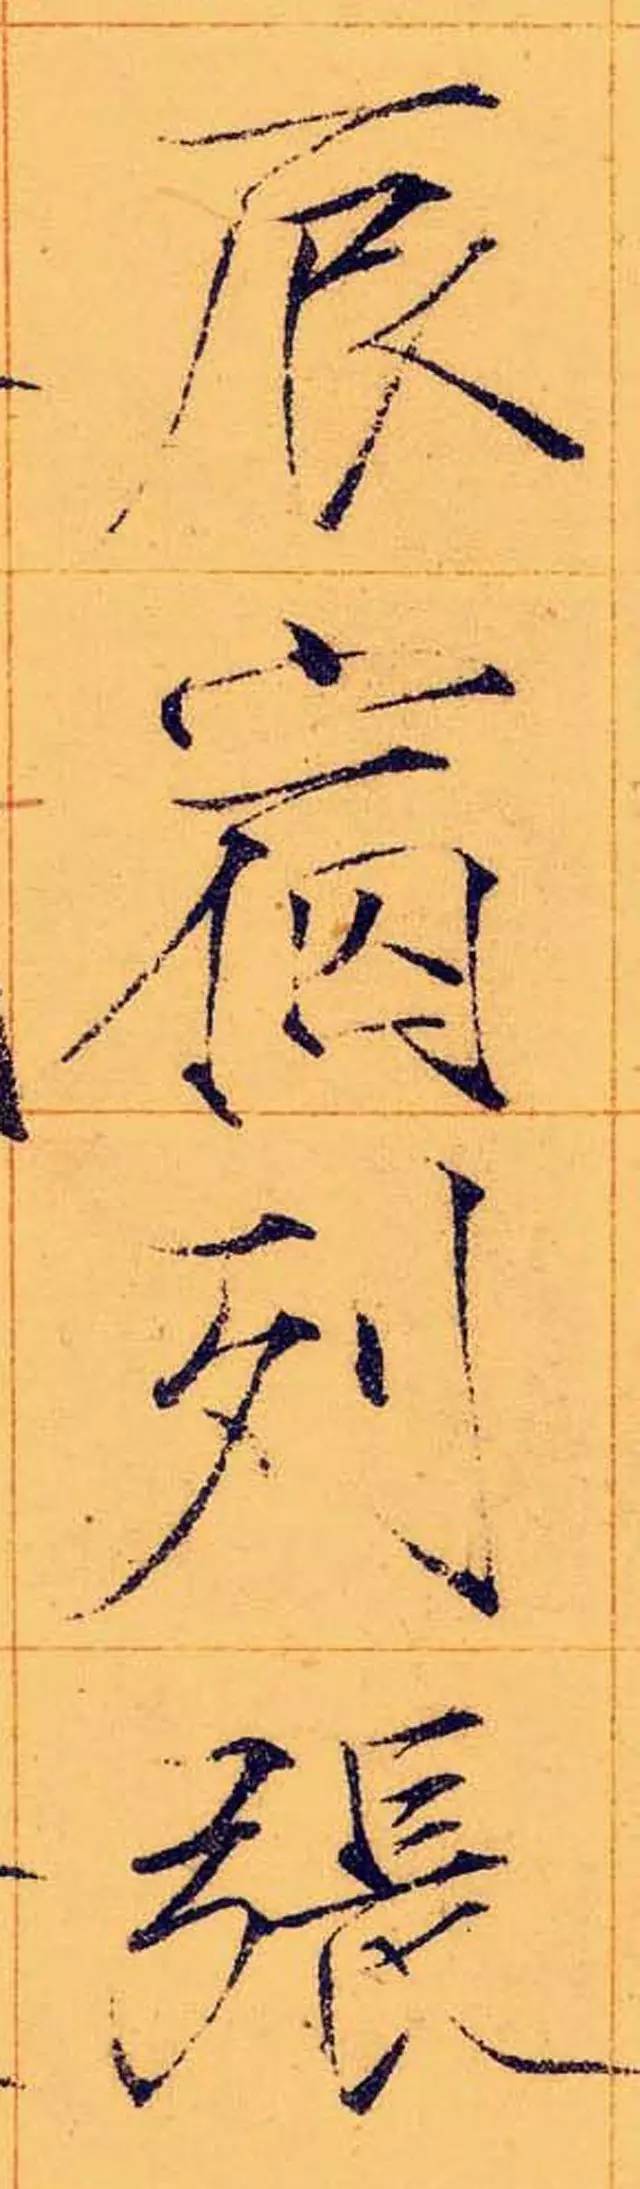 辰宿列張